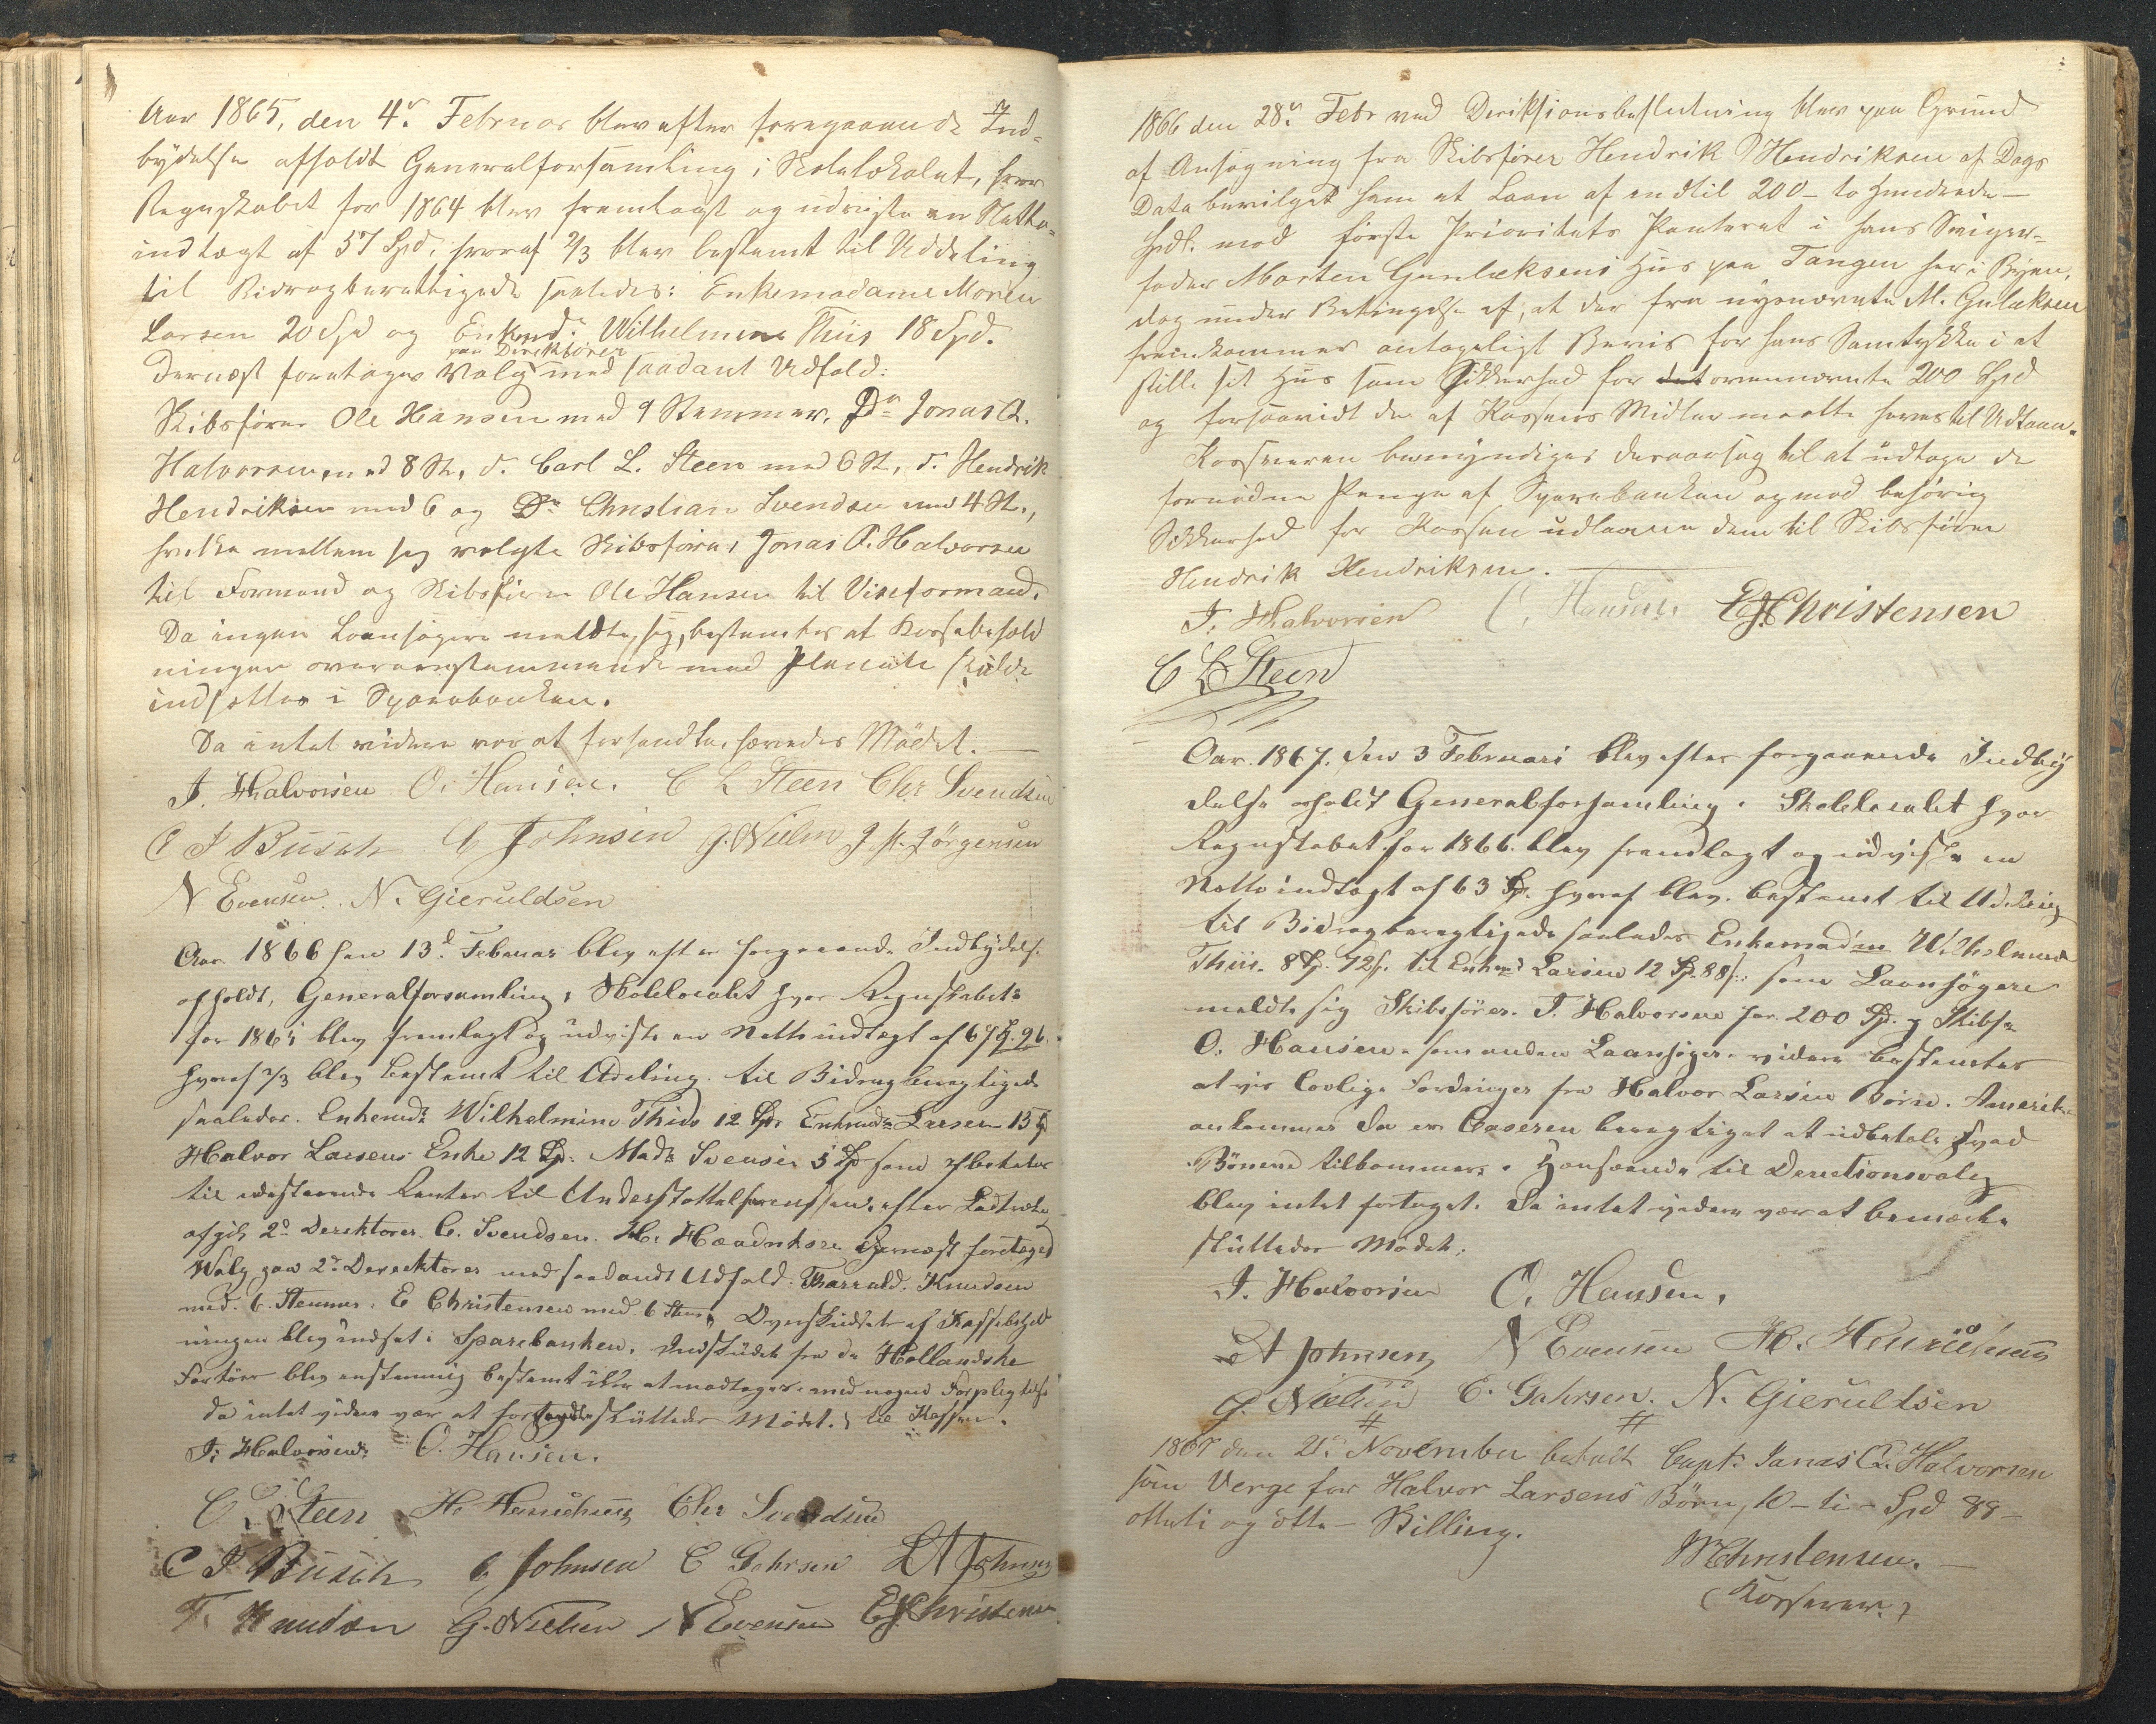 Aar 1865, den 4de Februar blev efter foregaaende Ind-
bydelse afholdt Generalforsamling i Skolelokalet, hvor
Regnskabet for 1864 blev fremlagt og udviste en Netto-
indtægt af 57 Spd, hvoraf 2/3 blev bestemt til Uddeling
til Bidragberettigede saaledes: Enkemadame Maren
Larsen 20 Spd og Enkemd. Wilhelmine Thiis 18 Spd.
Dernæst foretoges Valg paa Direktører med saadant Udfald:
Skibsfører Ole Hansen med 9 Stemmer, Do Jonas A.
Halvorsen med 8 St., d. Carl L. Steen med 6 St, d. Hendrik
Hendriksen med 6 og Do Christian Svendsen med 4 St.,
hvilke mellem sig valgte Skibsfører Jonas A. Halvorsen
til Formand og Skibsfører Ole Hansen til Viseformand.
Da ingen Laansøgere meldte sig, bestemtes at Kassebehold
ningen overensstemmende med Planen skulde
indsættes i Sparebanken.
Da intet videre var at forhandle, hævedes Mødet.
J. Halvorsen O. Hansen. C L Steen Chr Svendsen
C J Busch C Johnsen G. Nielsen J. M. Jörgensen
N Evensen. N. Gieruldsen
Aar 1866 den 13d Februar blev efter forgaaende Indbydelse
afholdt, Generalforsamling i Skolelocalet hvor Regnskabet
for 1865 blev fremlagt og udviste en Nettoindtægt af 67 Sp. 96
hvoraf 2/3 blev bestemt til Udeling til Bidragberegtigede
saaledes. Enkemd. Wilhelmine Thiis 12 Sp. Enkemd. Larsen 13 Sp
Halvor Larsens Enke 12 Sp. Mad. Svensen 5 Sp som
til udestaaende Renter til efter Lodtrækn
afgik 2de Direktører. C. Svendsen. H. Hændriksen Dernæst foretaget
Valg paa 2de Derecktører med saadandt Udfald: Tharald. Knudsen
med. 6. Stemmer. E Christensen med 6 Stem. Overskudet af Kassebehold
ningen blev indsat i Sparebanken. Indskudet fra de Hollandske
Fartöer blev enstemmig bestemt ikke at modtages med nogen Forpligtelse
da intet videre var at forhandle sluttedes Mödet. til Kassen.
J. Halvorsen O. Hansen.
C L Steen H. Henrichsen Chr Svendsen
C J Busch C Johnsen E Gahrsen L A Johnsen
T. Knudsen G. Nielsen N Evensen E J Christensen
1866 den 28de Febr ved Direktionsbeslutning blev paa Grund
af Ansøgning fra Skibsfører Hendrik Hendriksen af Dags
Dato bevilget ham et Laan af indtil 200 - to hundrede -
Spdl. mod første Prioritets Panteret i hans Sviger-
fader Morten Gunlaksens Hus paa Tangen her i Byen,
dog under Betingelse af, at der fra nysnævnte M. Gulaksen
fremkommer antageligt Bevis for hans Samtykke i at
stille sit Hus som Sikkerhed for det ovennævnte 200 Spd
og forsaavidt der af Kassens Midler maatte haves til Udlaan.
Kassereren bemyndiges desaarsag til at udtage de
fornødne Penge af Sparebanken og mod behørig
Sikkerhed for Kassen udlaane dem til Skibsfører
Hendrik Hendriksen.
J. Halvorsen O. Hansen. E J Christensen
C L Steen
Aar. 1867. den 3 Februari blev efter forgaaende Indby
delse afholdt Generalforsamling i Skolelocalet hvor
Regnskabet for 1866. blev fremlagt og udviste en
Nettoindtægt af 63 Sp. hvoraf blev. bestemt til Udeling
til Bidragberegtigede saaledes Enkemadm Wilhelmine
Thiis. 8 Sp. 72 s. til Enkmd Larsen 12 Sp. 88 s. som Laansögere
meldte sig Skibsförer. J. Halvorsen for. 200 Sp. og Skibsf.
O. Hansen. som anden Laansøger. videre bestemtes
at vis lovlige Fordringer fra Halvor Larsens Börn i Amerika
ankommer da er Caseren beregtiget at udbetale hvad
Börnene tilkommer. Henseende til Derectionsvalg
blev intet fortaget. da intet videre var at bemærke
sluttedes Mödet.
J. Halvorsen O. Hansen.
L A Johnsen N Evensen H. Henrichsen
G. Nielsen E. Gahrsen. N. Gieruldsen
1867 den 21de November betalt Capt. Jonas A. Halvorsen
som Verge for Halvor Larsens Börn, 10 - ti - Spd 88 -
otteti og otte - Skilling.
M Christensen.
(Kasserer.)